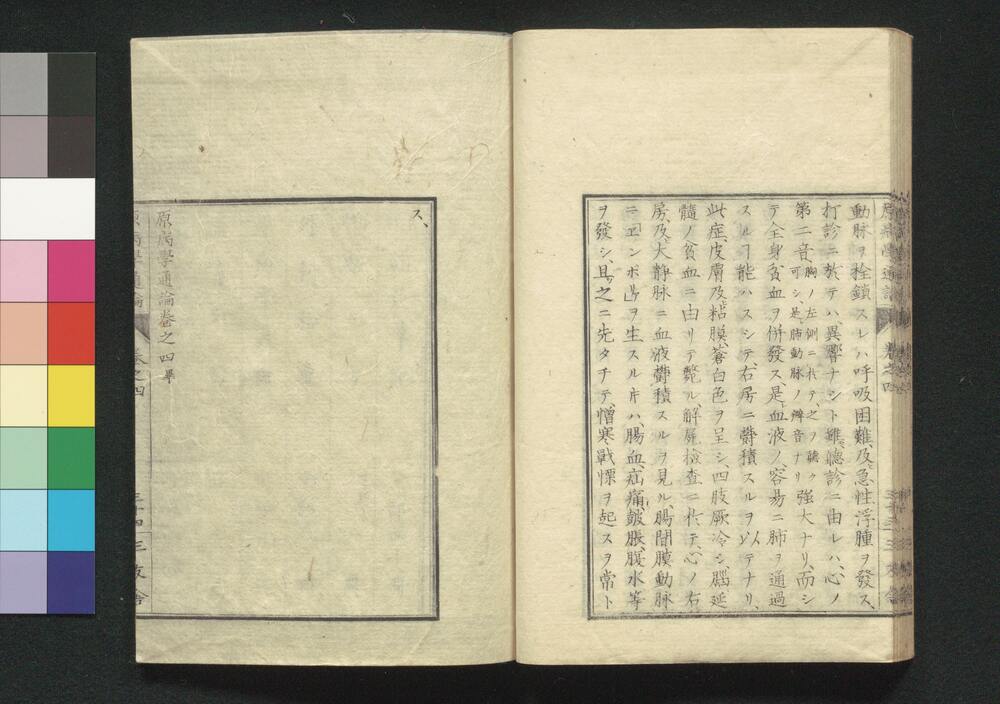 動脉ヲ拴鎖スレハ呼吸困難、及急性浮腫ヲ發ス、
打診ニ於テハ、異響ナシト雖、聽診ニ由レハ、心ノ
第二音、胸ノ左側ニ於テ、之ヲ聽ク可シ、是肺動脉ノ瓣音ナリ強大ナリ、而シ
テ全身貧血ヲ併發ス、是血液ノ、容易ニ肺ヲ通過
スルヿ能ハスシテ、右房ニ欝積スルヲ以テナリ、
此症、皮膚及粘膜、蒼白色ヲ呈シ、四肢厥冷シ、腦延
髓ノ貧血ニ由リテ斃ル、解屍檢査ニ於テ、心ノ右
房、及大静脉ニ血液欝積スルヲ見ル、腸間膜動脉
ニ「エンボリ」ヲ生スル片ハ、腸血、疝痛、皷脹、腹水等
ヲ發シ、且之ニ先タチテ、憎寒戰慄ヲ起スヲ常ト
ス、
原病學通論卷之四畢
原病學通論
卷之四
三十四
三友舎